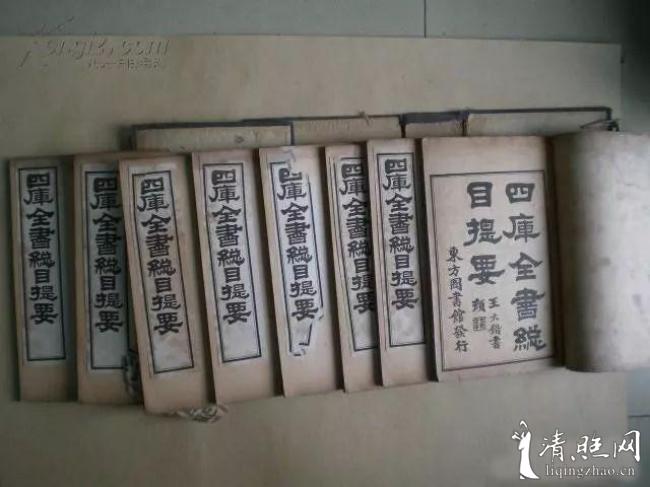 四庫全書總目提要
四庫全書總目提要
四庫全書總目提要
四庫全書總目提要
四庫全書總目提要
四庫全書總目提要
四庫全書總目提要
四庫全書總
目提要
王大錯書
題
東方圖書館發行
清旺网
liqingzhao.cn